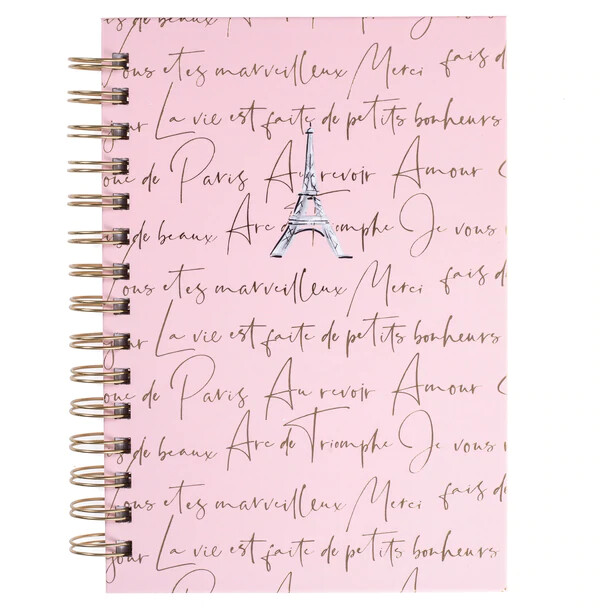 Vous etes marveilleux Merci fais d
jour La vie est faite de petits bonheurs
que de Paris Au revoir Amour C
is de beaux Arc de Triomphe Je vous
Vous etes marveilleux Merci fais d
jour La vie est faite de petits bonheurs
que de Paris Au revoir Amour C
is de beaux Arc de Triomphe Je vous
Vous etes marveilleux Merci fais de
jour La vie est faite de petits bonheurs
de Paris Au revoir Amour